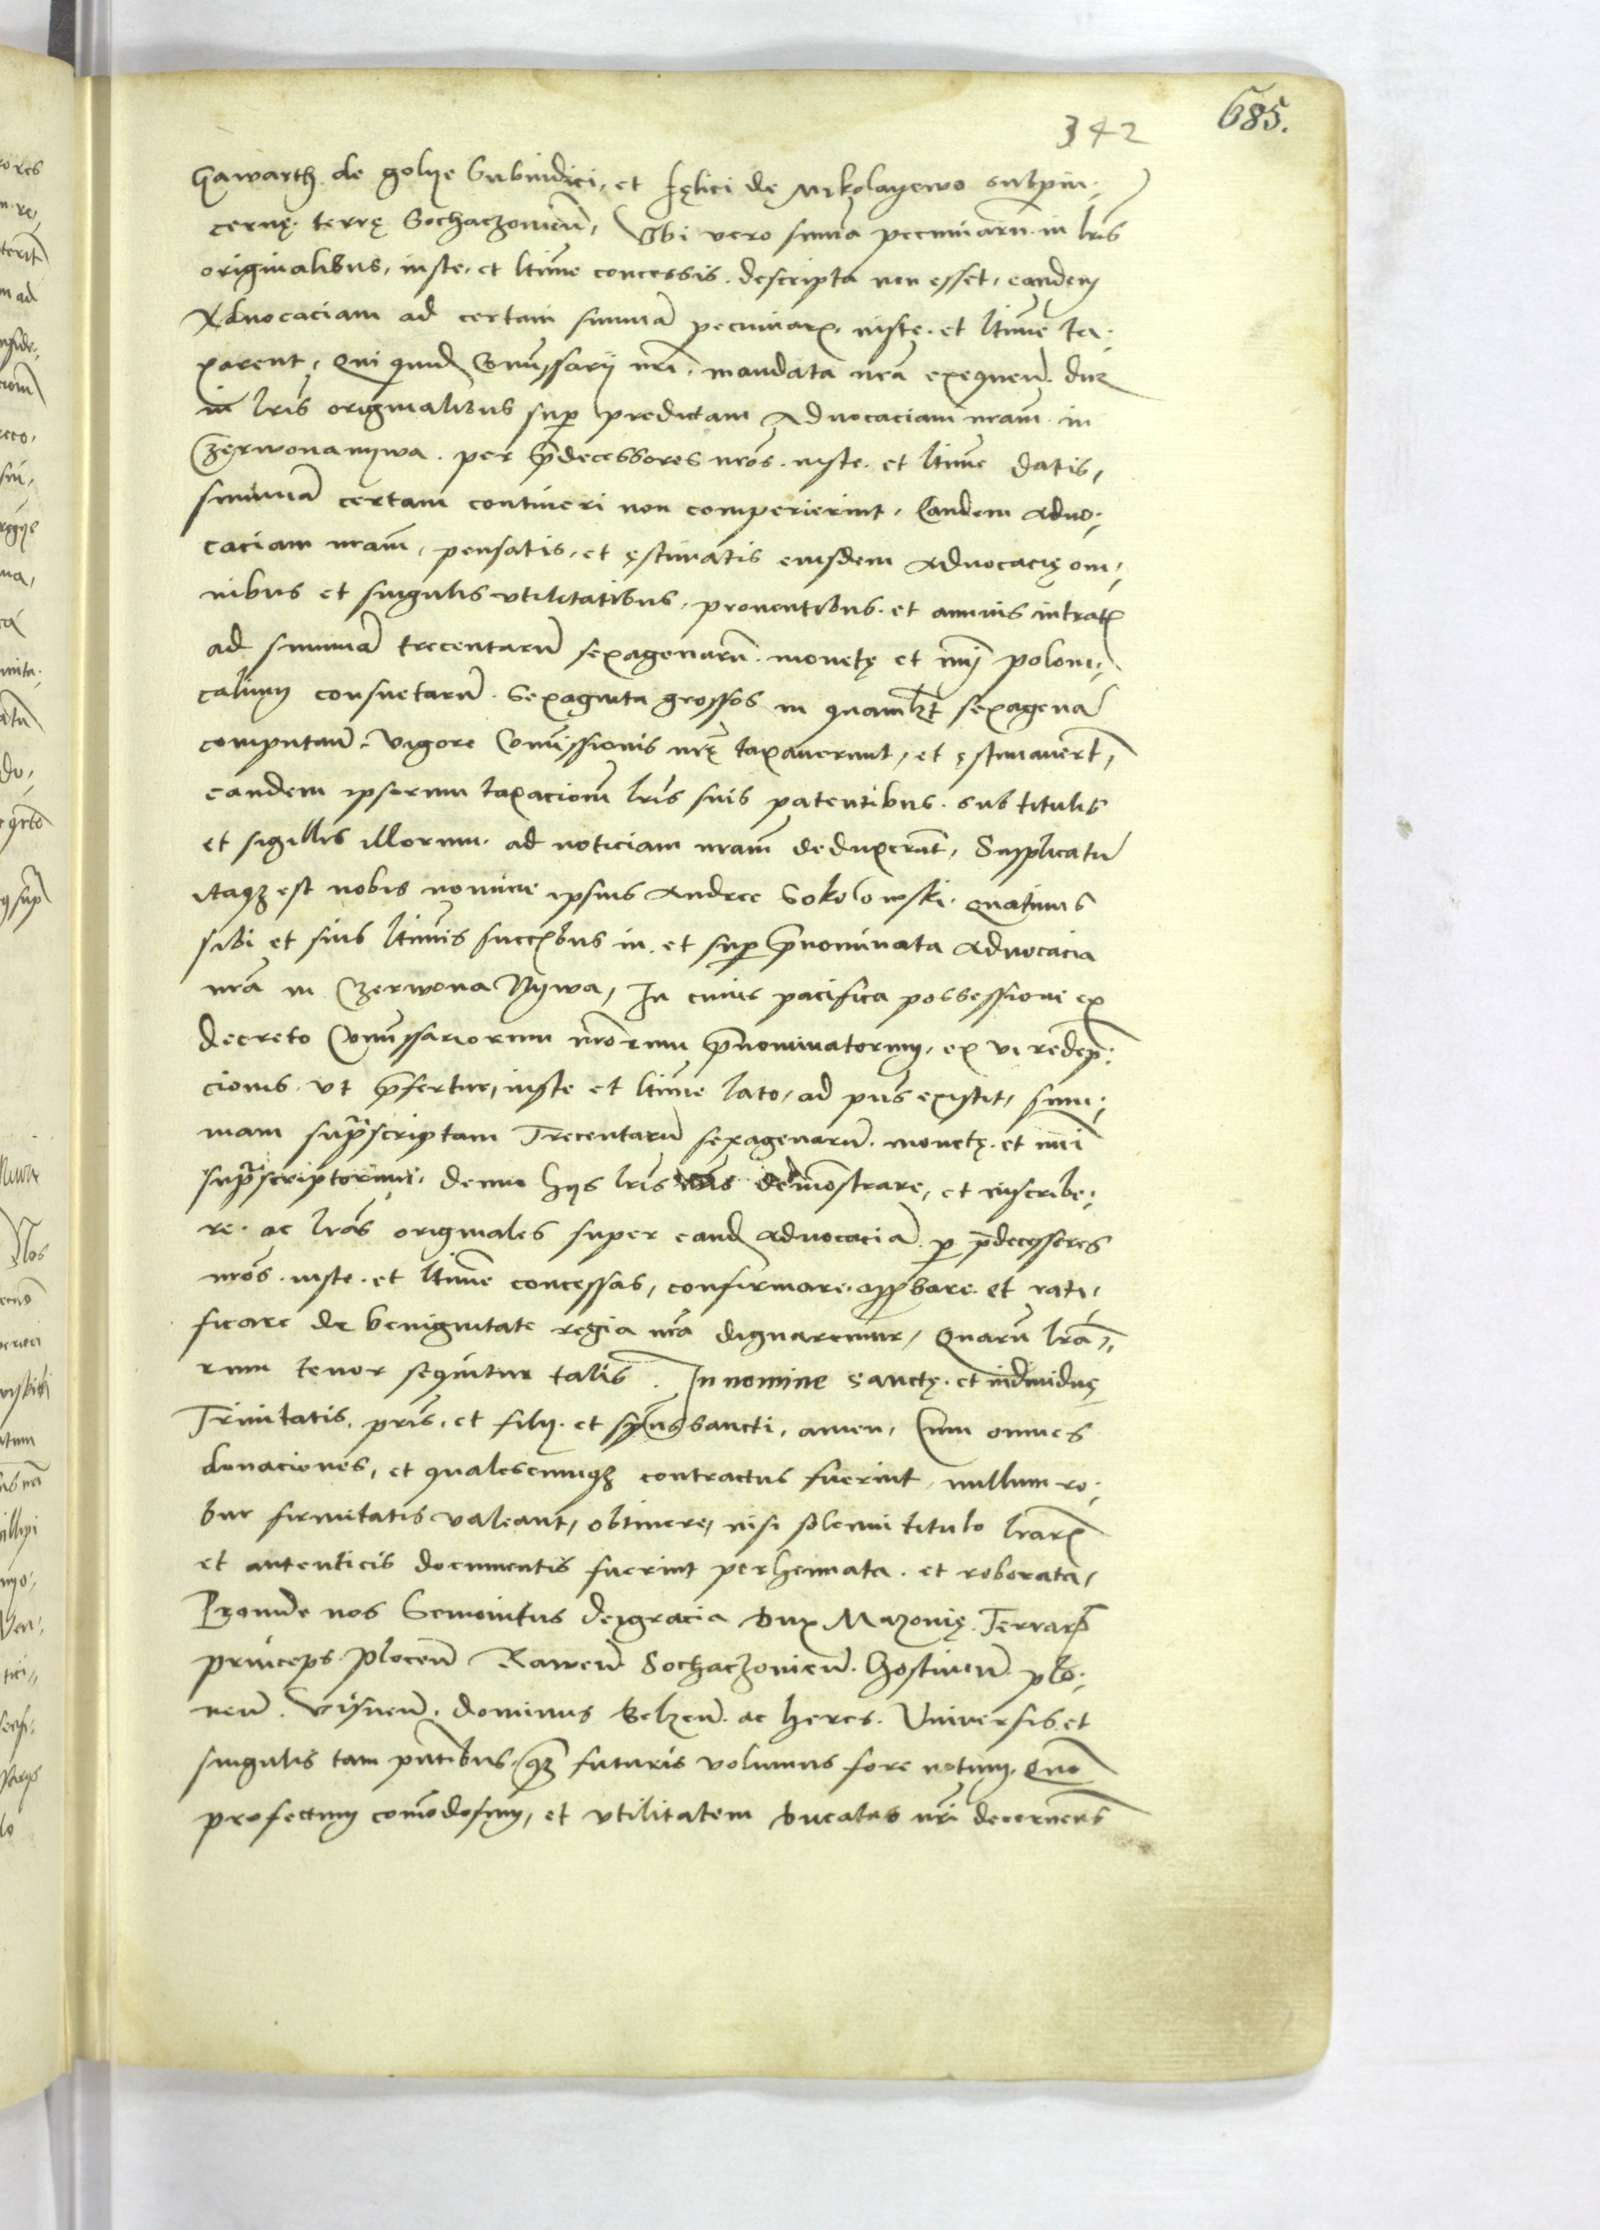 342
685.
Gawarth de golye Subiudici, et Fęlici de Mikolayewo subpin-
cernę terrę Sochaczovien̄, Vbi vero summa pecuniarū in lrīs
originalibus, iuste, et ltīme concessis descripta non esset, eandem
Aduocaciam ad certam summā pecuniarꝫ iuste et ltīme ta-
xarent, Qui quidē Comissarij nrī, mandata nrā exequen̄, dū
in lrīs originalibus sup̄ predictam Aduocaciam nrām in
Czerwona nywa per p̄decessores nrōs iuste et ltīme datis,
summā certam contineri non comperierint, Eandem Aduo-
caciam nrām, pensatis, et ęstimatis eiusdem Aduocacię om-
nibus et singulis vtilitatibus, prouentibus et annuis intratꝭ
ad summā trecentarū sexagenarū monetę et nūi poloni-
calium consuetarū Sexaginta grossos in quamlꝫt sexagenā
computan̄ Vigore Comissionis nrę̄ taxauerunt, et ęstimauert̄,
eandem ipsorum taxacionē lrīs suis patentibus sub titulis
et sigillis illorum ad noticiam nrām deduxerūt, Supplicatū
itaqꝫ est nobis nomine ipsius Andree Sokolowski quatinus
sibi et suis ltīmis succr̄ibus in et sup̄ p̄nominata Aduocacia
nrā in Czerwona Nywa, In cuius pacifica possessione ex
decreto Comissariorum nrōrum p̄nominatorum, ex vi redemp-
cionis vt p̄fertur, iuste et ltīme lato, ad pn̄s existit, sum-
mam sup̄scriptam Trecentarū sexagenarū monetę et nūi
sup̄scriptorum, denuo hijs lrīs nrīs demōstrare, et inscribe-
re ac lrās originales super eandē aduocaciā p̄ p̄decessores
nrōs iuste et ltīme concessas, confirmare, app̄bare et rati-
ficare de benignitate regia nrā dignaremur, Quarū lrā-
rum tenor sequitur talis. In nomine Sanctę et indiuiduę
Trinitatis, prīs, et filij et sp̄us sancti, amen, Cum omnes
donaciones, et qualescunqꝫ contractus fuerint, nullum ro-
bur firmitatis valeant, obtinere, nisi solemni titulo lrārꝫ
et autenticis documentis fuerint perhennata et roborata,
Proinde nos Semouitus dei gracia Dux Mazouię Terrarꝫ
princeps Plocen̄ Rawen̄ Sochaczouien̄ Gostinen̄ plo-
nen̄ Visnen̄ dominus Belzen̄ ac heres Vniuersis et
singulis tam pn̄tibus qꝫ futuris volumus fore notum Quō
profectum comōdosum, et vtilitatem Ducatus nrī decernens̄